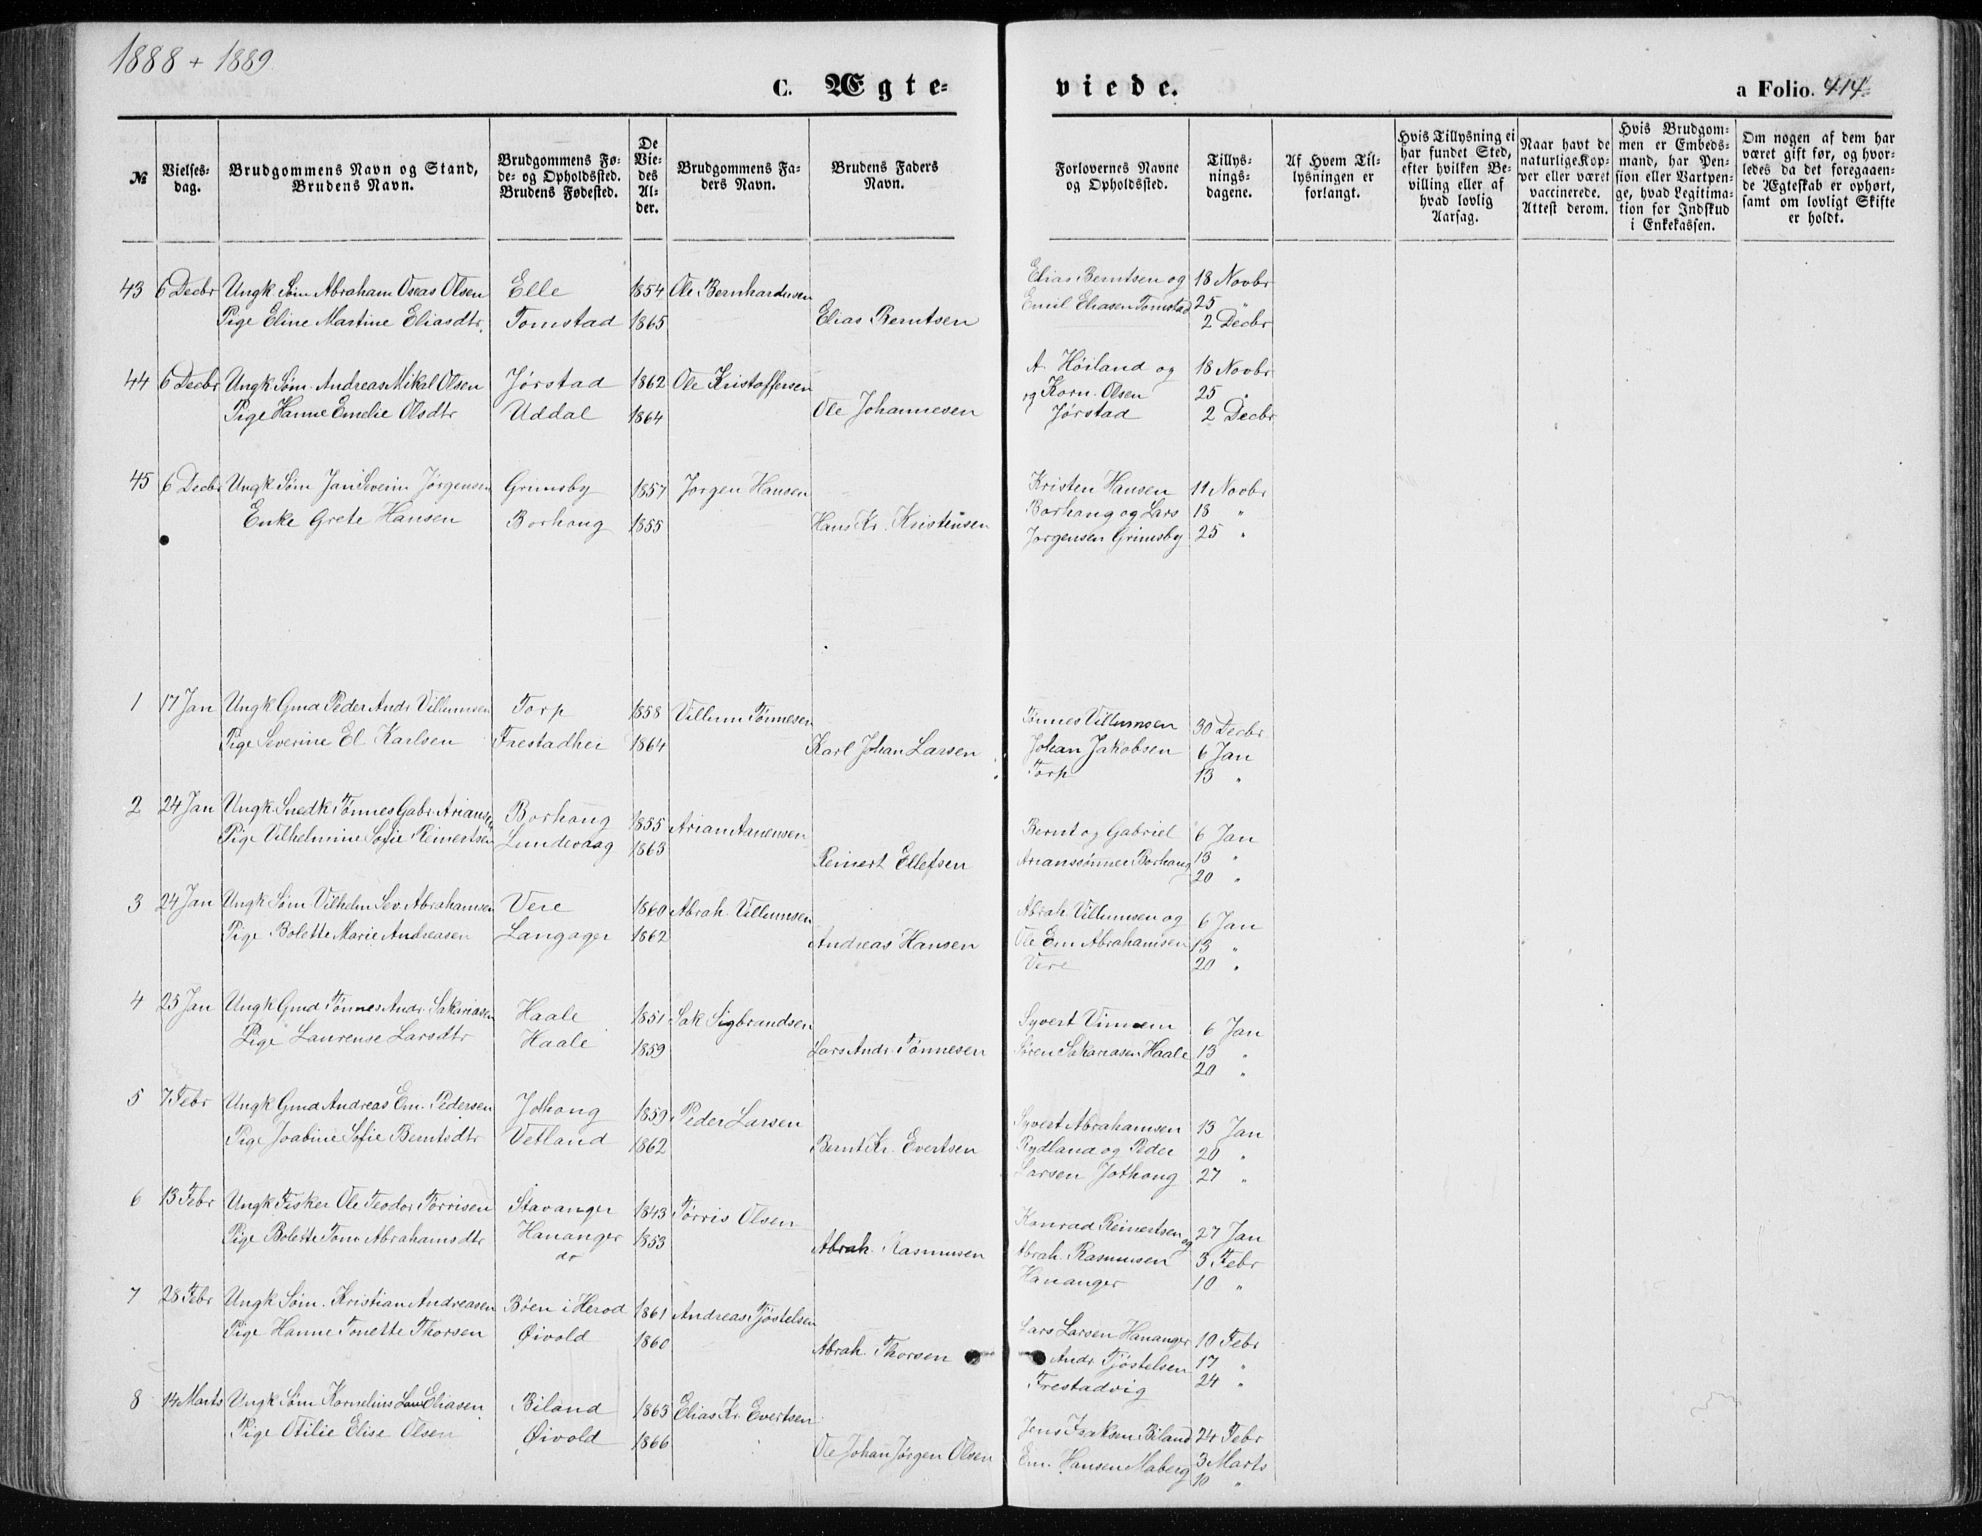 1888 + 1889
C. Ægte-
viede.
a Folio. 414.
№
Vielses-
dag.
Brudgommens Navn og Stand,
Brudens Navn.
Brudgommens Fø-
de- og Opholdssted.
Brudens Fødested.
De
Vie-
des
Al-
der.
Brudgommens Fa-
ders Navn.
Brudens Faders
Navn.
Forlovernes Navne
og Opholdssted.
Tillys-
nings-
dagene.
Af Hvem Til-
lysningen er
forlangt.
Hvis Tillysning ei
har fundet Sted,
efter hvilken Be-
villing eller af
hvad lovlig
Aarsag.
Naar havt de
naturlige Kop-
per eller været
vaccinerede.
Attest derom.
Hvis Brudgom-
men er Embeds-
mand, har Pen-
sion eller Vartpen-
ge, hvad Legitima-
tion for Indskud
i Enkekassen.
Om nogen af dem har
været gift før, og hvor-
ledes da det foregaaen-
de Ægteskab er ophørt,
samt om lovligt Skifte
er holdt.
43 6 Decbr Ungk Søm Abraham Oseas Olsen Elle 1854 Ole Bernhardusen
Pige Eline Martine Eliasdtr. Tomstad 1865 Elias Berntsen
Elias Berntsen og 18 Novbr
Emil Eliasen Tomstad 25 "
2 Decbr
44 6 Decbr Ungk Søm. Andreas Mikal Olsen Jørstad 1862 Ole Kristoffersen
Pige Hanne Emelie Olsdtr Uddal 1864 Ole Johannesen
A. Høiland og 18 Novbr
og Korn. Olsen 25 "
Jørstad 2 Decbr
45 6 Decbr Ungk Søm Jan Severin Jørgensen Grimsby 1857 Jørgen Hansen
Enke Grete Hansen Borhoug 1855 Hans Kr. Kristensen
Kristen Hansen 11 Novbr
Borhaug og Lars 18 "
Jørgensen Grimsby 25 "
1 17 Jan Ungk Gmd Peder Andr Villumsen Torp 1858 Villum Tønnesen
Pige Severine El Karlsen Frestadhei 1864 Karl Johan Larsen
Tønnes Villumsen 30 Decbr
Johan Jakobsen 6 Jan
Torp 13 "
2 24 Jan Ungk Snedk Tønnes Gabr. Ariansen Borhoug 1855 Arian Aanensen
Pige Vilhelmine Sofie Reinertsen Lundevaag 1863 Reinert Ellefsen
Bernt og Gabriel 6 Jan
Arianssønner Borhaug 13 "
20 "
3 24 Jan Ungk Søm. Vilhelm Sev. Abrahamsen Vere 1860 Abrah. Villumsen
Pige Bolette Marie Andreasen Langager 1862 Andreas Hansen
Abrah Villumsen og 6 Jan
Ole Em Abrahamsen 13 "
Vere 20 "
4 25 Jan Ungk Gmd Tønnes Andr. Sakariasen Haale 1851 Sak Sigbrandsen
Pige Laurense Larsdtr Haale 1859 Lars Andr. Tønnesen
Syvert Vinnem 6 Jan
Søren Sakariasen Haale 13 "
20 "
5 7 Febr Ungk Gmd Andreas Em. Pedersen Jothoug 1859 Peder Larsen
Pige Joabine Sofie Berntsdtr Vetland 1862 Bernt Kr. Evertsen
Syvert Abrahamsen 13 Jan
Rydland og Peder 20 "
Larsen Jothoug 27 "
6 13 Febr Ungk Fisker Ole Teodor Tørrisen Stavanger 1843 Tørris Olsen
Pige Bolette Tom Abrahamsdtr Hananger 1853 Abrah. Rasmusen
do
Konrad Reinertsen og 27 Jan
Abrah. Rasmusen 3 Febr
Hananger 10 "
7 28 Febr Ungk Søm. Kristian Andreasen Bøen i Herod 1861 Andreas Tjøstelsen
Pige Hanne Tonette Thorsen Øivold 1860 Abrah. Thorsen
Lars Larsen Hananger 10 Febr
Andr Tjøstelsen 17 "
Frestadvig 24 "
8 14 Marts Ungk Søm Kornelius Eliasen Biland 1863 Elias Kr. Evertsen
Pige Otilie Elise Olsen Øivold 1866 Ole Johan Jørgen Olsen
Jens Isaksen Biland 24 Febr
Em. Hansen Maberg 3 Marts
10 "